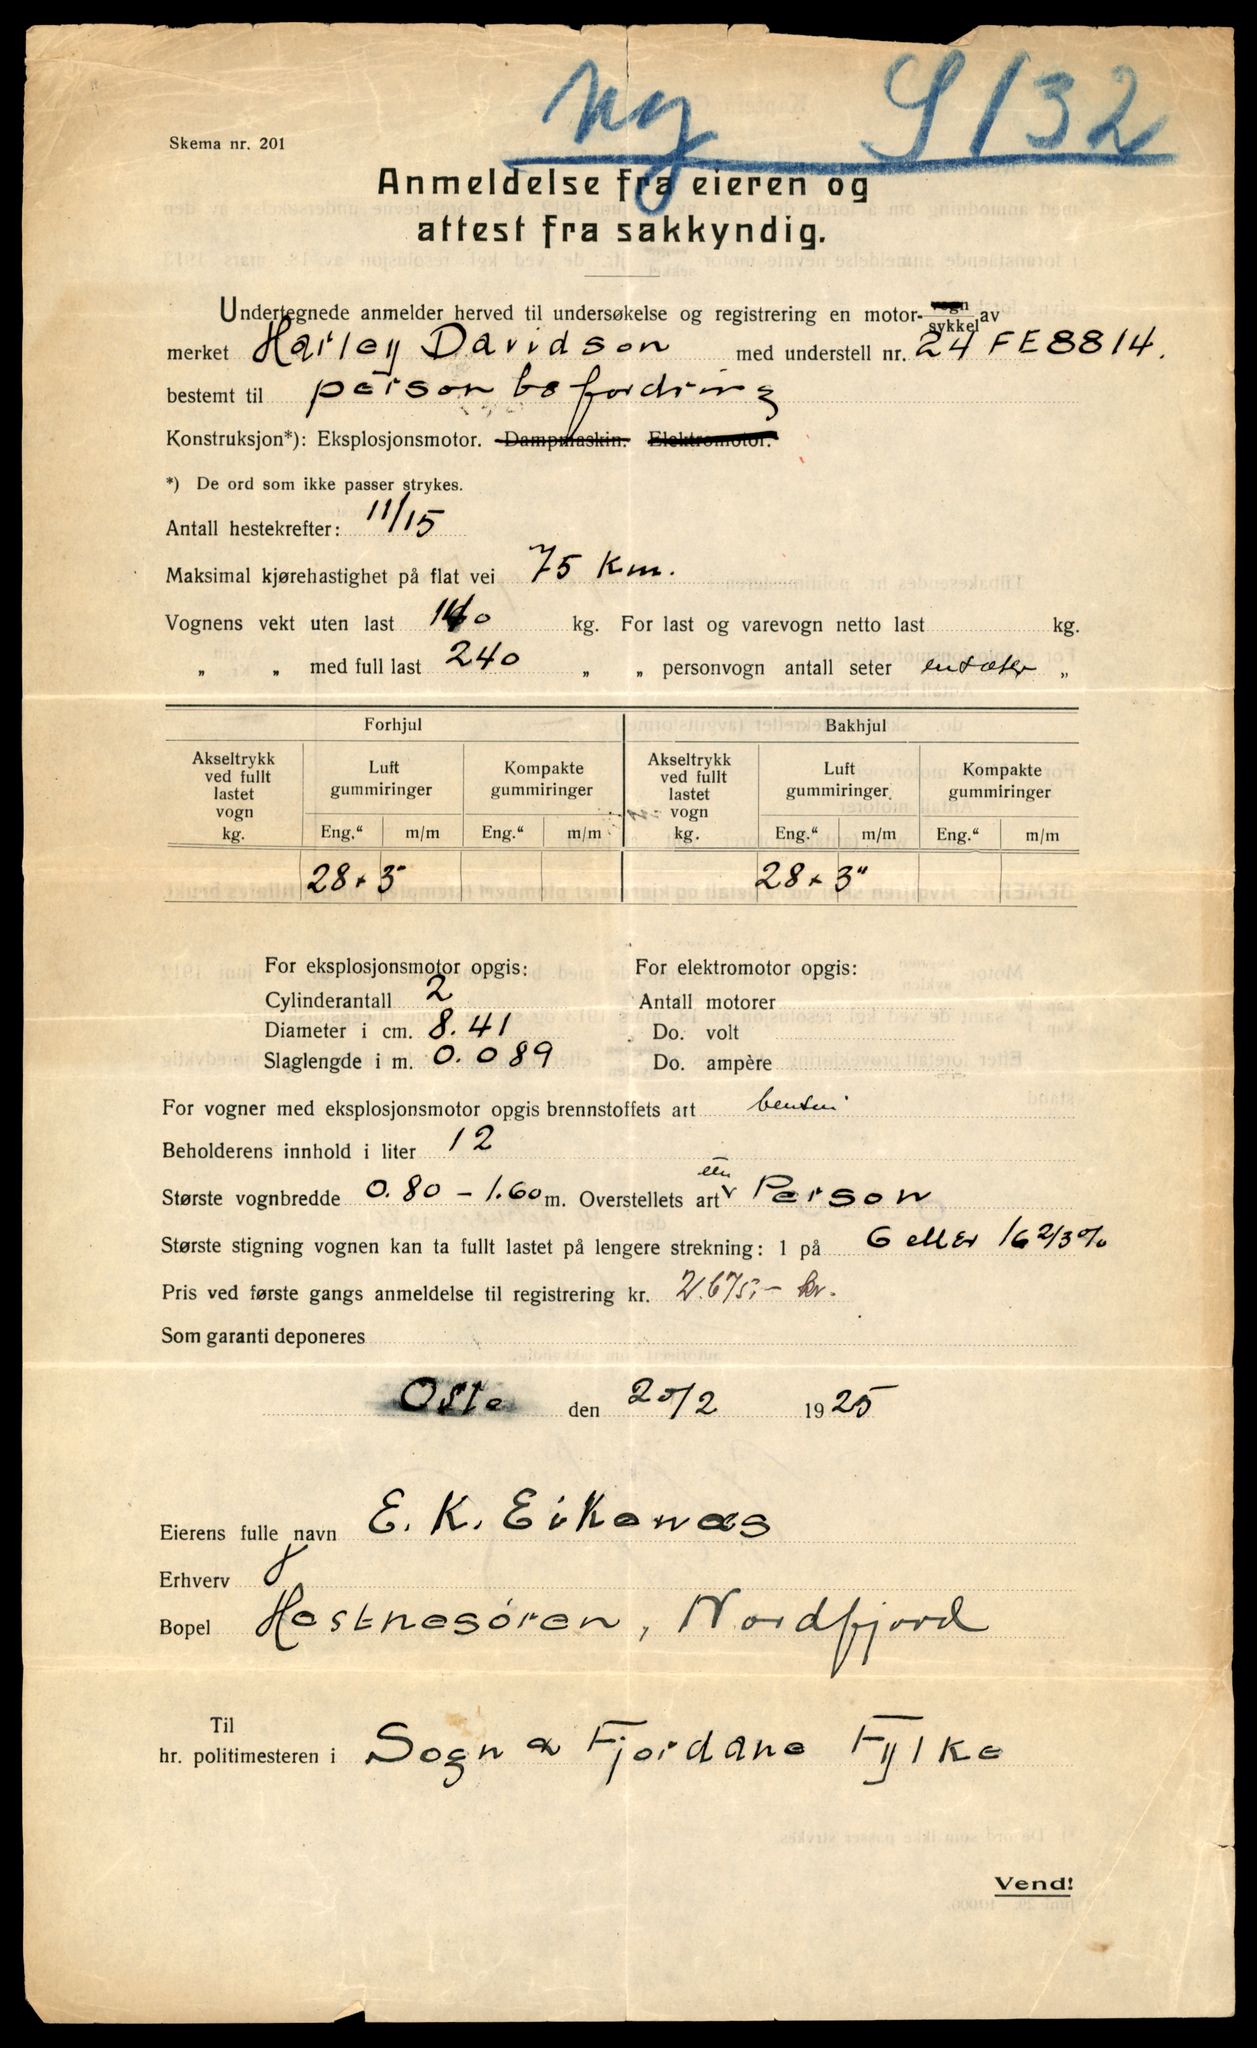 ny S 132
Skema nr. 201
Anmeldelse fra eieren og
attest fra sakkyndig.
Undertegnede anmelder herved til undersøkelse og registrering en motor- vogn sykkel av
merket Harley Davidson med understell nr. 24 FE 8814.
bestemt til person befordring
Konstruksjon*): Eksplosjonsmotor. Dampmaskin. Elektromotor.
*) De ord som ikke passer strykes.
Antall hestekrefter: 11/15
Maksimal kjørehastighet på flat vei 75 Km.
Vognens vekt uten last 140 kg. For last og varevogn netto last kg.
„ „ med full last 240 „ „ personvogn antall seter „
Forhjul Bakhjul
Akseltrykk ved fullt lastet vogn kg. Luft gummiringer Kompakte gummiringer Akseltrykk ved fullt lastet vogn kg. Luft gummiringer Kompakte gummiringer
Eng.“ m/m Eng.“ m/m Eng.“ m/m Eng.“ m/m
28 × 3" 28 × 3"
For eksplosjonsmotor opgis: For elektromotor opgis:
Cylinderantall 2 Antall motorer
Diameter i cm. 8.41 Do. volt
Slaglengde i m. 0.089 Do. ampère
For vogner med eksplosjonsmotor opgis brennstoffets art bensin
Beholderens innhold i liter 12
Største vognbredde 0.80 – 1.60 m. Overstellets art een Person
Største stigning vognen kan ta fullt lastet på lengere strekning: 1 på 6 eller 16 2/3 %
Pris ved første gangs anmeldelse til registrering kr. 2.675,- kr.
Som garanti deponeres
Oslo den 20/2 1925
Eierens fulle navn E. K. Eikenæs
Erhverv
Bopel Hestnesøren, Nordfjord
Til
hr. politimesteren i Sogn & Fjordane Fylke
Vend!